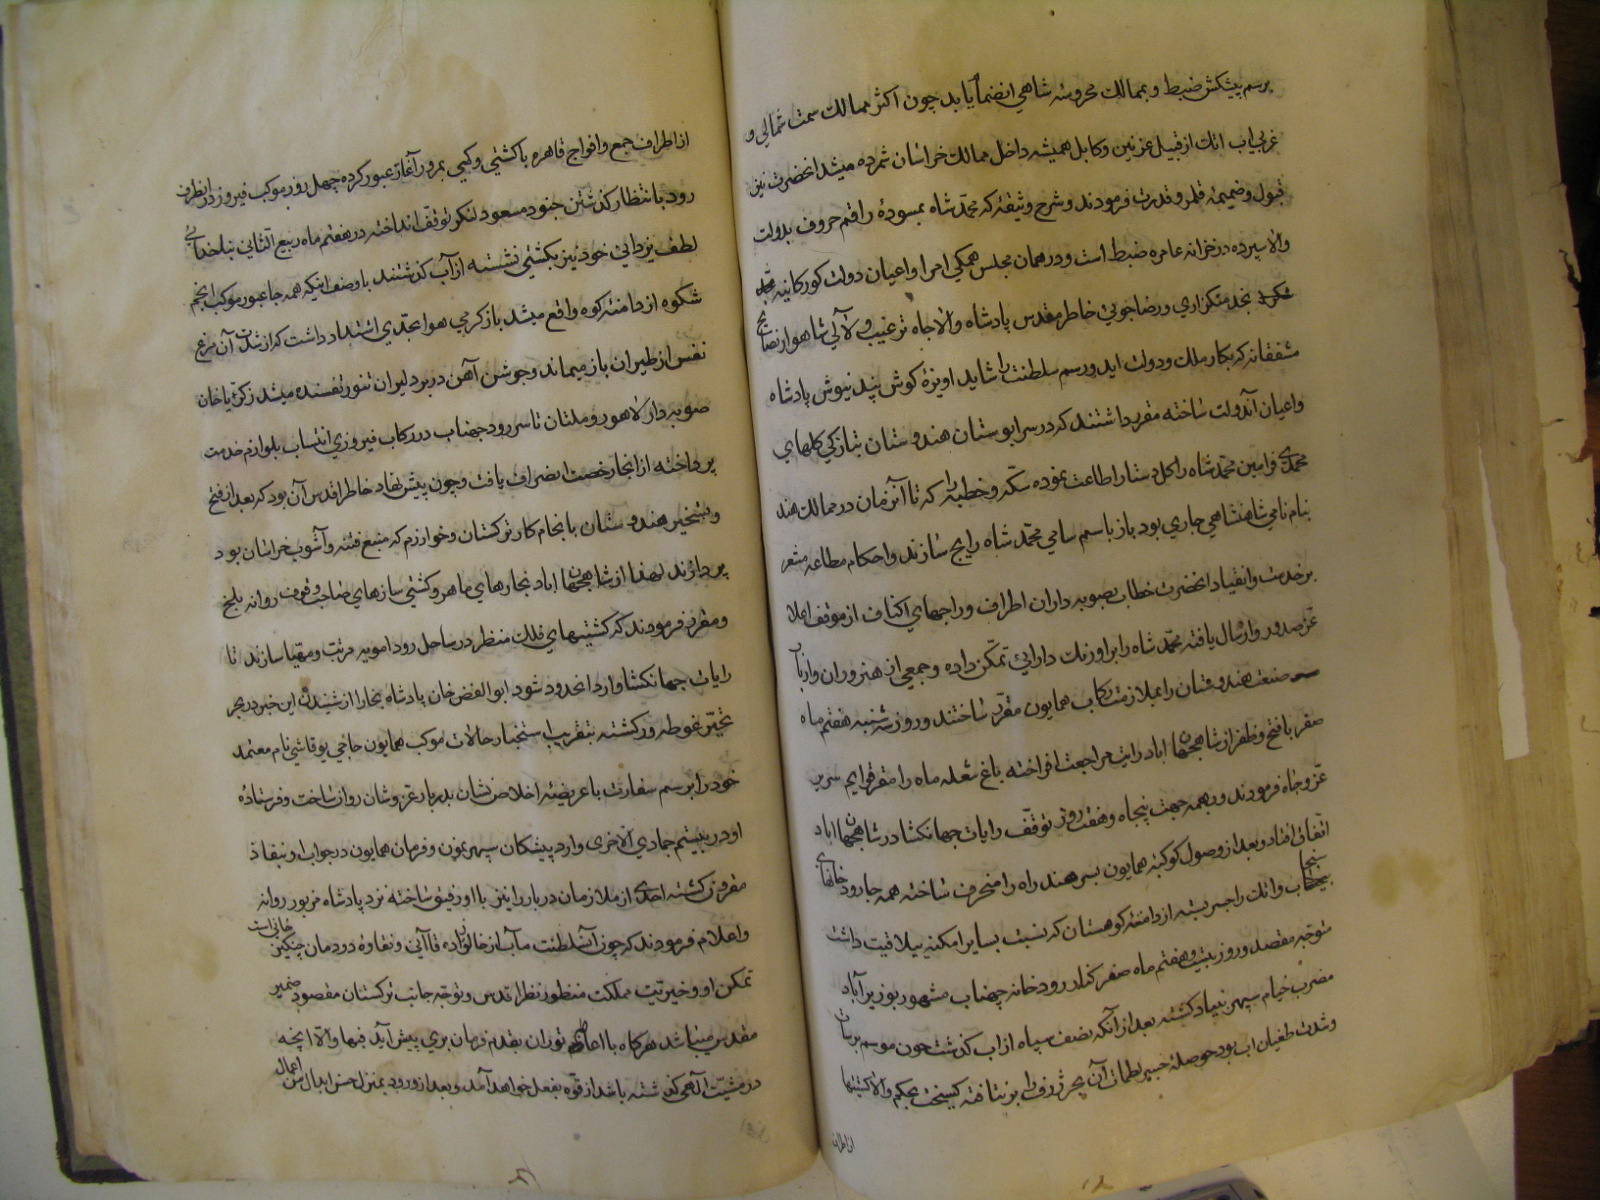 برسم پیشکش ضبط و بممالک محروسه شاهی انضمام یابد چون اکثر ممالک سمت شمالی و
غربی اب اتک از قبیل غزنین و کابل همیشه داخل ممالک خراسان شمرده میشد انحضرت نیز
قبول و ضمیمهٔ قلمرو قدرت فرمودند و شرح وثیقهٔ که محمد شاه بمسودهٔ راقم حروف بدولت
والا سپرده در خزانه عامره ضبط است و در همان مجلس همکی امرا و اعیان دولت کورکانیه
بخدمتکزاری و رضاجوئی خاطر مقدس پادشاه والاجاه ترغیب و لآلی شاهوار نصایح
مشفقانه که بکار ملک و دولت اید و رسم سلطنت را شاید اویزهٔ کوش پند نیوش پادشاه
و اعیان آندولت ساخته مقرر داشتند که در سرابوستان هندوستان بتازکی کلهای
محمدی فرامین محمد شاه را کل دستار اطاعت نموده سکّه و خطبه را که تا آنزمان در ممالک هند
بنام نامی شاهنشاهی جاری بود باز باسم سامی محمد شاه رایج سازند و احکام مطاعه مشعر
بر خدمت و انقیاد انحضرت خطاب بصوبه داران اطراف و راجهای اکناف از موقف اعلا
عز صدور و ارسال یافته محمد شاه را بر اورنک دارائی تمکّن داده و جمعی از هنروران و ارباب
صنعت هندوستان را بملازمت رکاب همایون مقرّر ساختند و روز سه شنبه هفتم ماه
صفر با فتح و ظفر از شاهجهان اباد رایت مراجعت افراخته باغ شعله ماه را مقر قوایم سریر
عز و جاه فرمودند و بهمه جهت پنجاه و هفت روز توقّف رایات جهانکشا در شاهجهان اباد
اتفاق افتاد و بعد از وصول کوکبهٔ همایون بسرهند راه را منحرف ساخته همه جا رودخانهای
پنجاب و اتک را جسر بسته از دامنهٔ کوهستان که نسبت بسایر امکنه ییلاقیت داشت
متوجه مقصد و روز بیست و هفتم ماه صفر کنار رودخانه چهناب مشهور بوزیرآباد
مضرب خیام سپهر بنیاد کشته بعد از آنکه نصف سپاه از اب کذشت چون موسم برسات
و شدت طغیان اب بود حوصلهٔ جسر لطمات آن بحر ژرف را برنتافته کسیخت بحکم والا کشتیها
از اطراف
از اطراف جمع و افواج قاهره با کشتی بمرور آغاز عبور کرده چهل روز موکب فیروز در انطرف
رود بانتظار کذشتن جنود مسعود لنکر توقف انداخته در هفتم ماه ربیع الثانی بناخدائی
لطف یزدانی خود نیز بکشتی نشسته از آب کذشتند با وصف اینکه همه جا عبور موکب انجم
شکوه از دامنهٔ کوه واقع میشد باز کرمی هوا بحدی اشتداد داشت که از شدت آن مرغ
نفس از طیران باز میماند و جوشن آهن در بر دلیران تنور تفسنده میشد زکریا خان
صوبه دار لاهور و ملتان تا سر رود چهناب در رکاب فیروزی انتساب بلوازم خدمت
پرداخته از انجا رخصت انصراف یافت و چون پیش نهاد خاطر اقدس آن بود که بعد از فتح
و تسخیر هندوستان بانجام کار ترکستان و خوارزم که منبع فتنه و آشوب خراسان بود
پردازند لهذا از شاهجهان اباد نجارهای ماهر و کشتی سازهای صاحب وقوف روانه بلخ
و مقرر فرمودند که کشتیهای فلک منظر در ساحل رود امویه مرتب و مهیا سازند تا
رایات جهانکشا وارد انحدود شود ابوالفیض خان پادشاه بخارا از شنیدن این خبر در بحر
تحیّر غوطه ور کشته بتقریب استخبار حالات موکب همایون حاجی بوقاشی نام معتمد
خود را برسم سفارت با عریضهٔ اخلاص نشان بدربار عز و شان روانه ساخت و فرستادهٔ
او در بیستم جمادی الاخری وارد پیشکاه سپهر نمون و فرمان همایون در جواب او بنفاذ
مقرون کشته احدی از ملازمان دربار را نیز با او رفیق ساخته نزد پادشاه مزبور روانه
و اعلام فرمودند که چون آن سلطنت مآب از خانوادهٔ قاآنی و نقاوهٔ دودمان چنکیز خانی است
تمکن او و خیریت مملکت منظور نظر اقدس و توجه جانب ترکستان مقصود ضمیر
مقدس میباشد هر کاه با اعاظم توران بقدم فرمان بری پیش آید فبها و الا انچه
در مشیّت آلهی کذشته باشد از قوّه بفعل خواهد آمد و بعد از ورود بمنزل حسن ابدال من اعمال